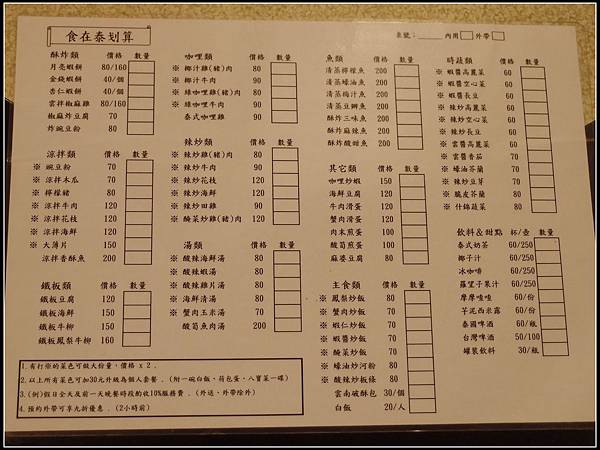 食在泰划算
桌號：______ 內用□ 外帶□
酥炸類 價格 數量
月亮蝦餅 80/160
金錢蝦餅 40/個
杏仁蝦餅 40/個
雲拌椒麻雞 80/160
椒麻炸豆腐 70
炸豌豆粉 80
涼拌類 價格 數量
※ 豌豆粉 70
※ 涼拌木瓜 70
※ 檸檬豬 80
※ 涼拌牛肉 120
※ 涼拌花枝 120
※ 涼拌海鮮 120
※ 大薄片 150
涼拌香酥魚 200
鐵板類 價格 數量
鐵板豆腐 120
鐵板海鮮 150
鐵板牛柳 150
鐵板鳳梨牛柳 160
咖哩類 價格 數量
※ 椰汁雞(豬)肉 80
※ 椰汁牛肉 90
※ 綠咖哩雞(豬)肉 80
※ 綠咖哩牛肉 90
泰式咖哩雞 90
辣炒類 價格 數量
※ 辣炒雞(豬)肉 80
※ 辣炒牛肉 90
※ 辣炒花枝 120
※ 辣炒海鮮 120
※ 辣炒田雞 90
※ 醃菜炒雞(豬)肉 120
湯類 價格 數量
※ 酸辣海鮮湯 80
※ 酸辣蝦湯 80
※ 酸辣雞片湯 80
※ 海鮮清湯 80
※ 蟹肉玉米湯 80
酸筍魚肉湯 200
魚類 價格 數量
清蒸檸檬魚 200
清蒸蠔油魚 200
清蒸梅汁魚 200
清蒸豆瓣魚 200
酥炸三味魚 200
酥炸麻辣魚 200
酥炸酸甜魚 200
其它類 價格 數量
咖哩炒蝦 150
海鮮豆腐 80
牛肉滑蛋 80
蟹肉滑蛋 80
肉末煎蛋 80
酸筍煎蛋 80
麻婆豆腐 80
主食類 價格 數量
※ 鳳梨炒飯 80
※ 蟹肉炒飯 80
※ 蝦仁炒飯 80
※ 蝦醬炒飯 80
※ 醃菜炒飯 80
※ 蠔油炒河粉 80
※ 酸辣炒板條 80
雲南破酥包 30/個
白飯 20/人
時蔬類 價格 數量
※ 蝦醬高麗菜 60
※ 蝦醬空心菜 60
※ 蝦醬長豆 60
※ 辣炒高麗菜 60
※ 辣炒空心菜 60
※ 辣炒長豆 60
※ 雲醬高麗菜 60
※ 雲醬香茄 70
※ 蠔油芥蘭 70
※ 辣炒豆芽 70
※ 脆皮芥蘭 80
※ 什錦蔬菜 80
飲料&甜點 杯/壺 數量
泰式奶茶 60/250
椰子汁 60/250
冰咖啡 60/250
羅望子果汁 60/250
摩摩喳喳 60/份
芋泥西米露 60/份
泰國啤酒 60/瓶
台灣啤酒 50/100
罐裝飲料 30/瓶
1.有打※的菜色可做大份量，價格 x 2 。
2.以上所有菜色可加30元升級為個人套餐．(附一碗白飯、荷包蛋、八寶菜一碟)
3.(例)假日全天及前一天晚餐時段酌收10%服務費．(外送、外帶除外)
4.預約外帶可享九折優惠．(2小時前)